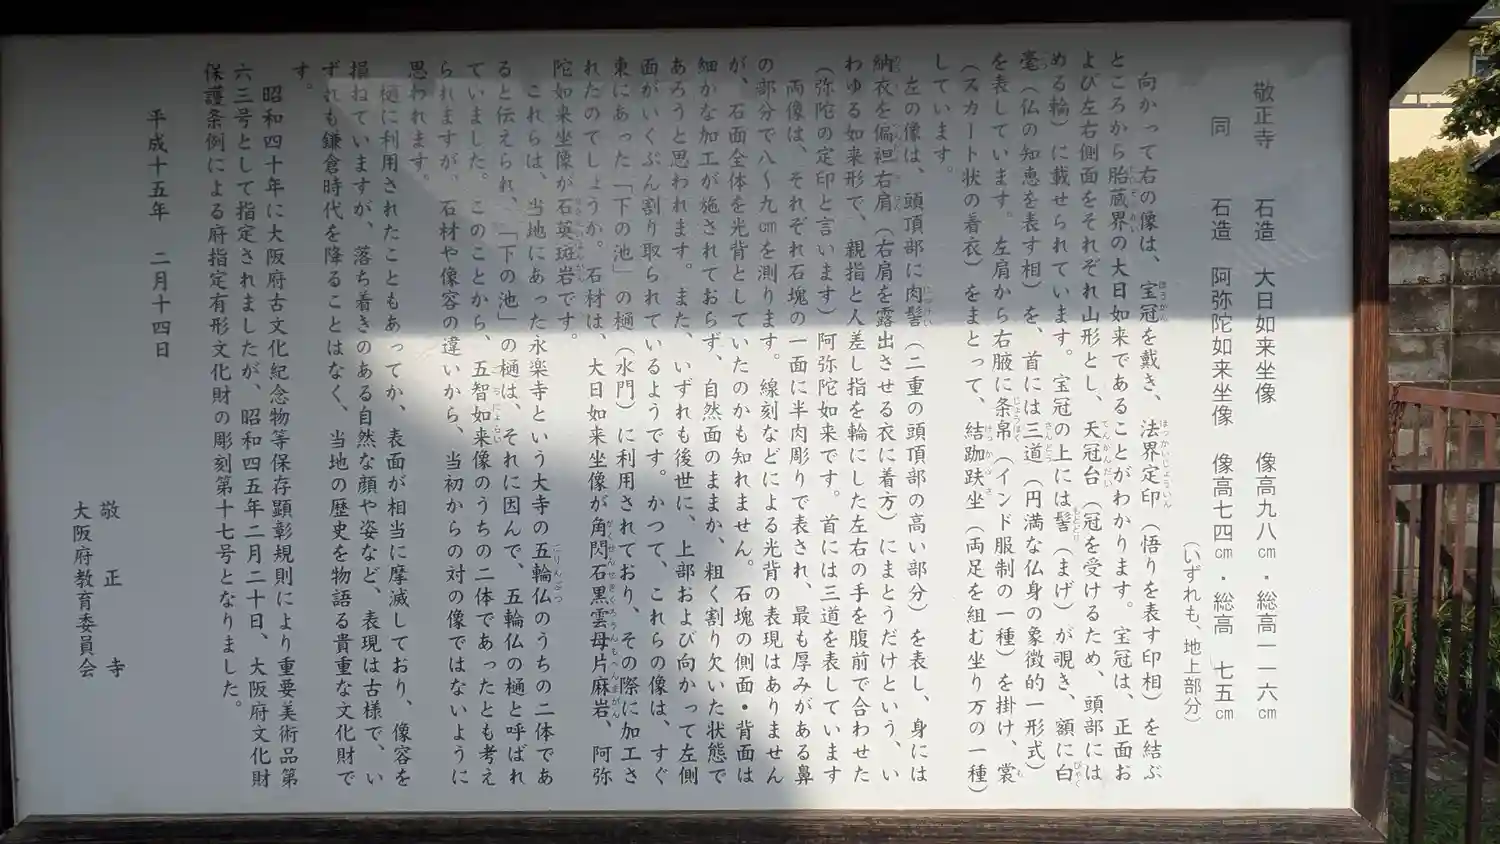 敬正寺　石造　大日如来坐像　像高九八㎝・総高一一六㎝
同　石造　阿弥陀如来坐像　像高七四㎝・総高　七五㎝
（いずれも、地上部分）
向かって右の像は、宝冠を戴き、法界定印（悟りを表す印相）を結ぶ
ところから胎蔵界の大日如来であることがわかります。宝冠は、正面お
よび左右側面をそれぞれ山形とし、天冠台（冠を受けるため、頭部には
める輪）に載せられています。宝冠の上には髻（まげ）が覗き、額に白
毫（仏の知恵を表す相）を、首には三道（円満な仏身の象徴的一形式）
を表しています。左肩から右腋に条帛（インド服制の一種）を掛け、裳
（スカート状の着衣）をまとって、結跏趺坐（両足を組む坐り方の一種）
しています。
左の像は、頭頂部に肉髻（二重の頭頂部の高い部分）を表し、身には
衲衣を偏袒右肩（右肩を露出させる衣に着方）にまとうだけという、い
わゆる如来形で、親指と人差し指を輪にした左右の手を腹前で合わせた
（弥陀の定印と言います）阿弥陀如来です。首には三道を表しています
両像は、それぞれ石塊の一面に半肉彫りで表され、最も厚みがある鼻
の部分で八～九㎝を測ります。線刻などによる光背の表現はありません
が、石面全体を光背としていたのかも知れません。石塊の側面・背面は
細かな加工が施されておらず、自然面のままか、粗く割り欠いた状態で
あろうと思われます。また、いずれも後世に、上部および向かって左側
面がいくぶん割り取られているようです。かつて、これらの像は、すぐ
東にあった「下の池」の樋（水門）に利用されており、その際に加工さ
れたのでしょうか。石材は、大日如来坐像が角閃石黒雲母片麻岩、阿弥
陀如来坐像が石英斑岩です。
これらは、当地にあった永楽寺という大寺の五輪仏のうちの二体であ
ると伝えられ、「下の池」の樋は、それに因んで、五輪仏の樋と呼ばれ
ていました。このことから、五智如来像のうちの二体であったとも考え
られますが、石材や像容の違いから、当初からの対の像ではないように
思われます。
樋に利用されたこともあってか、表面が相当に摩滅しており、像容を
損ねていますが、落ち着きのある自然な顔や姿など、表現は古様で、い
ずれも鎌倉時代を降ることはなく、当地の歴史を物語る貴重な文化財で
す。
昭和四十年に大阪府古文化紀念物等保存顕彰規則により重要美術品第
六三号として指定されましたが、昭和四五年二月二十日、大阪府文化財
保護条例による府指定有形文化財の彫刻第十七号となりました。
平成十五年　二月十四日
敬　正　寺
大阪府教育委員会